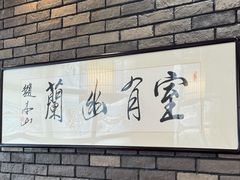 室有幽蘭